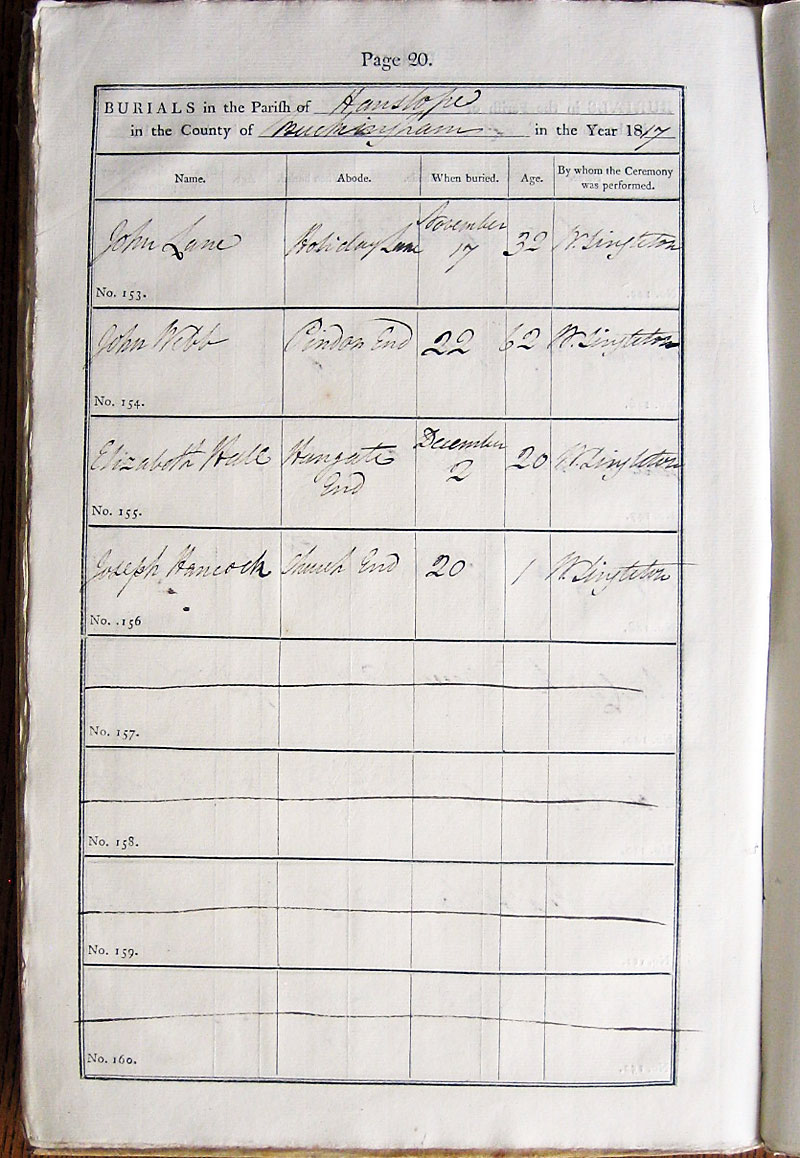 Page 20.
BURIALS in the Parish of Hanslope
in the County of Buckingham in the Year 1817
Name. Abode. When buried. Age. By whom the Ceremony was performed.
John Lane Holiday Lane November 17 32 W. Singleton
No. 153.
John Webb Pindon End 22 62 W. Singleton
No. 154.
Elizabeth Hall Hungate End December 2 20 W. Singleton
No. 155.
Joseph Hancock Church End 20 1 W. Singleton
No. 156
No. 157.
No. 158.
No. 159.
No. 160.